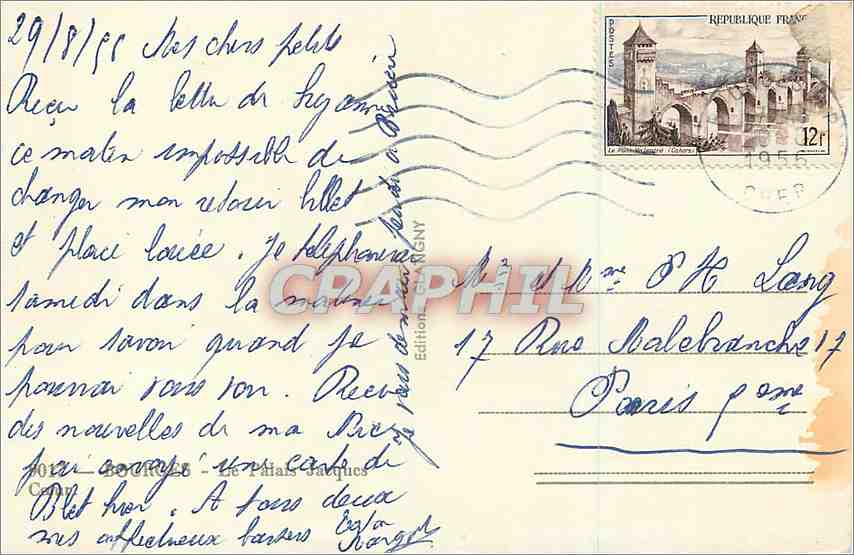 29/8/55 Mes chers petits
Reçu la lettre de Suzanne
ce matin impossible de
changer mon retour billet
et place louée. Je téléphonerai
samedi dans la matinée
pour savoir quand je
pourrai vous voir. Reçu
des nouvelles de ma
j'ai envoyé une carte de
Blet hier. A tous deux
mes affectueux baisers
je vais demain jeudi à
9017 — BOURGES - Le Palais Jacques
Cœur
Edition GLANGNY
CRAPHIL
POSTES
REPUBLIQUE FRANC
12F
Le Pont Valentré (Cahors)
1955
CHER
Mr et Mme P H Lang
17 Rue Malebranche 17
Paris 5eme